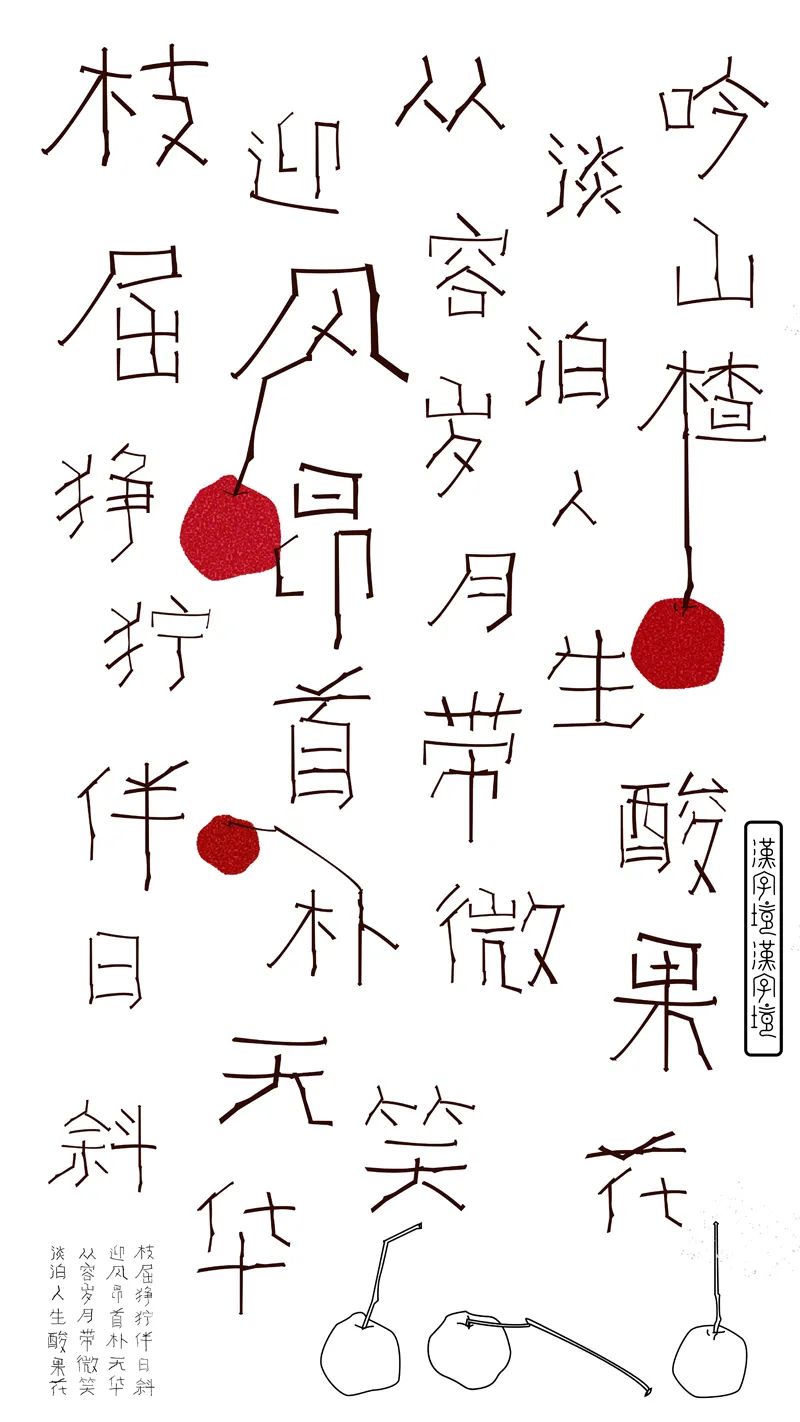 枝屈狰狞伴日斜
迎风昂首朴无华
从容岁月带微笑
淡泊人生酸果花
吟山楂
漢字漢字
枝屈狰狞伴日斜
迎风昂首朴无华
从容岁月带微笑
淡泊人生酸果花